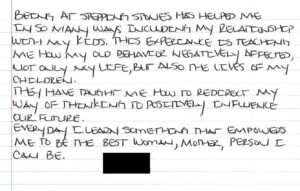 BEING AT STEPPING STONES HAS HELPED ME
IN SO MANY WAYS INCLUDING MY RELATIONSHIP
WITH MY KIDS. THIS EXPERIANCE IS TEACHING
ME HOW MY OLD BEHAVIOR NEGATIVELY AFFECTED,
NOT ONLY MY LIFE, BUT ALSO THE LIVES OF MY
CHILDREN.
THEY HAVE TAUGHT ME HOW TO REDIRECT MY
WAY OF THINKING TO POSITIVELY INFLUENCE
OUR FUTURE.
EVERYDAY I LEARN SOMETHING THAT EMPOWERS
ME TO BE THE BEST WOMAN, MOTHER, PERSON I
CAN BE.